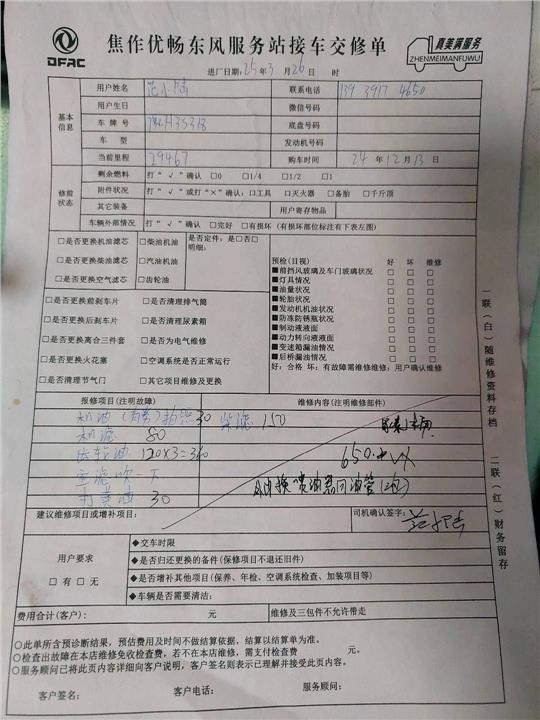 DFAC
焦作优畅东风服务站接车交修单
真美满服务
ZHENMEIMANFUWU
进厂日期：25年3月26日 时
基本信息
用户姓名 联系电话 139 3917 4650
用户生日 微信号码
车牌号 底盘号码
车型 发动机号码
当前里程 29467 购车时间 24年12月13日
修前状态
剩余燃料 打“√”确认 □0 □1/4 □1/2 □1
附件状况 打“√”或打“×”确认：□工具 □灭火器 □备胎 □千斤顶
其它装备 用户寄存物品
车辆外部情况 打“√”确认 □完好 □有损坏（有损坏部位标注有下表左图）
□是否更换机油滤芯 □柴油机油 是否定件：是□否□
明细：
□是否更换柴油滤芯 □汽油机油
□是否更换空气滤芯 □齿轮油
□是否更换前刹车片 □是否清理排气筒
□是否更换后刹车片 □是否清理尿素箱
□是否更换离合三件套 □是否为电气维修
□是否更换火花塞 □空调系统是否正常运行
□是否清理节气门 □其它项目维修及更换
预检(目视) 好 坏 维修
■前挡风玻璃及车门玻璃状况 □ □ □
■灯具情况 □ □ □
■油量状况 □ □ □
■轮胎状况 □ □ □
■发动机机油状况 □ □ □
■防冻防锈瓶状况 □ □ □
■制动液液面 □ □ □
■动力转向液液面 □ □ □
■变速箱漏油情况 □ □ □
■后桥漏油情况 □ □ □
好：合格 坏：有故障需维修维修：用户确认维修
报修项目(注明故障) 维修内容(注明维修部件)
机油 30 柴滤 150
机滤 80
齿轮油 120×3=360
650
空滤吹一下
换喷油器回油管
打黄油 30
建议维修项目或增补项目： 司机确认签字：
用户要求
□有 □无
◆交车时限
◆是否归还更换的备件(保修项目不退还旧件)
◆是否增补其他项目(保养、年检、空调系统检查、加装项目等)
◆车辆是否需要清洁：
费用合计(客户)： 元 维修及三包件不允许带走
○此单所含预诊断结果，预估费用及时间不做结算依据，结算以结算单为准。
○检查出故障在本店维修免收检查费，若不在本店维修，需支付检查费 元。
○服务顾问已将此页内容详细向客户说明，客户签名则表示已理解并接受此页内容。
客户签名： 客户电话： 服务顾问：
一联（白）随维修资料存档
二联（红）财务留存